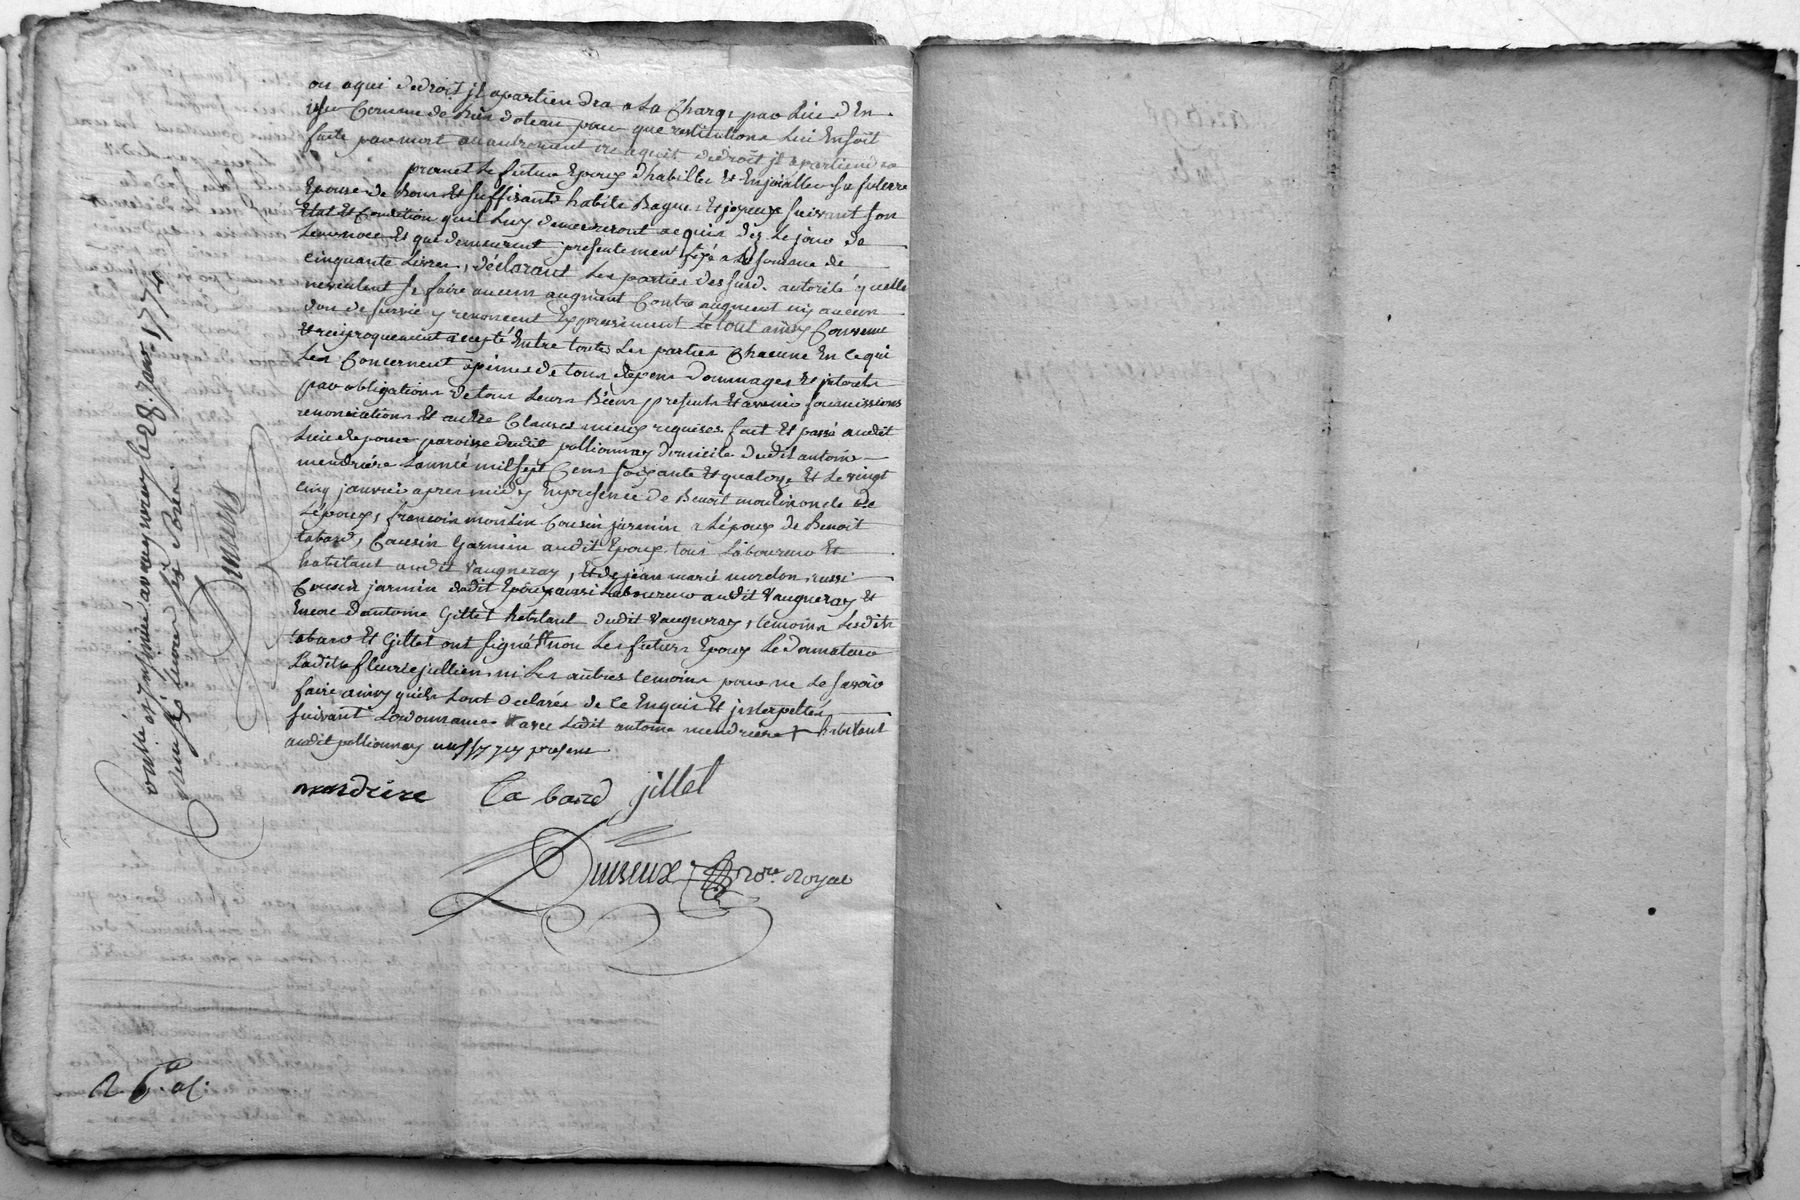 ou aqui de droit jl apartiendra a la Charge par luie d'En
faite par mort ou autrement ou aqui de droit jl apartiendra
promet le futur Epoux d'habiller et Enjoialler sa future
Epouse de Bons et suffisants habits Bagues et joyeux suivant son
Etat et Condition quil luy demeureront acquis dez le jour de
leur noce et que demeurent presentement fixé a la somme de
cinquante livres, déclarant les parties des susd. autorité quelle
ne veulent se faire aucun augment Contre augment ny aucun
don de survie y renoncent Expressement le tout ainsy Convenu
et reciproquement accepté Entre toutes les parties Chacune En ce qui
les Concernent a peines de tous depens dommages et jnterets
par obligations de tous leurs Biens presents et avenir soumissions
renonciations et autre Clauses mieux requises fait et passé audit
lieu de paroisse dudit pollionnay domicile dudit antoine
mendriere l'année mil sept Cens soixante et quatorze et le vingt
cinq janvier apres midy En presence de Benoit moulin oncle de
l'époux, francois moulin Cousin jarmin a l'époux de Benoit
tabard, Cousin Garmin audit Epoux tous laboureur et
habitant audit Vaugneray, et de jean marie mordon aussi
Cousin jarmin dudit Epoux aussi laboureur audit Vaugneray et
Encore d'antoine Gillet habitant dudit Vaugneray, temoins lesdits
tabard et Gillet ont signé et non les futurs Epoux le donateur
ladite fleurie jullien ni les autres temoins pour ne le savoir
faire ainsy quils l'ont declarés de ce Enquis et jnterpellés
suivant l'ordonnance et avec ledit antoine mendriere habitant
audit pollionnay aussy present
mandrire ta bard jillet
Duiseux Nore Royal
Controllé et jnsinué a vaugneray le 28. janv. 1774